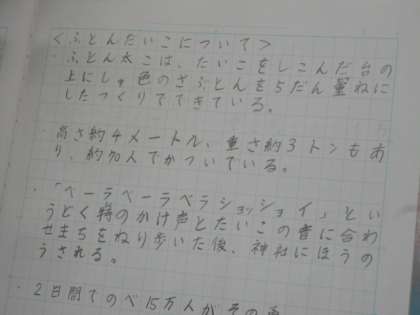 <ふとんだいこについて>
・ふとん太こは、たいこをしこんだ台の
上にしゅ色のざぶとんを5だん重ねに
したつくりでできている。
・高さ約4メートル、重さ約3トンもあ
り、約70人でかついでいる。
・「ベーラベーラベラショッショイ」とい
うどく特のかけ声とたいこの音に合わ
せまちをねり歩いた後、神社にほうの
うされる。
・2日間でのべ15万人が